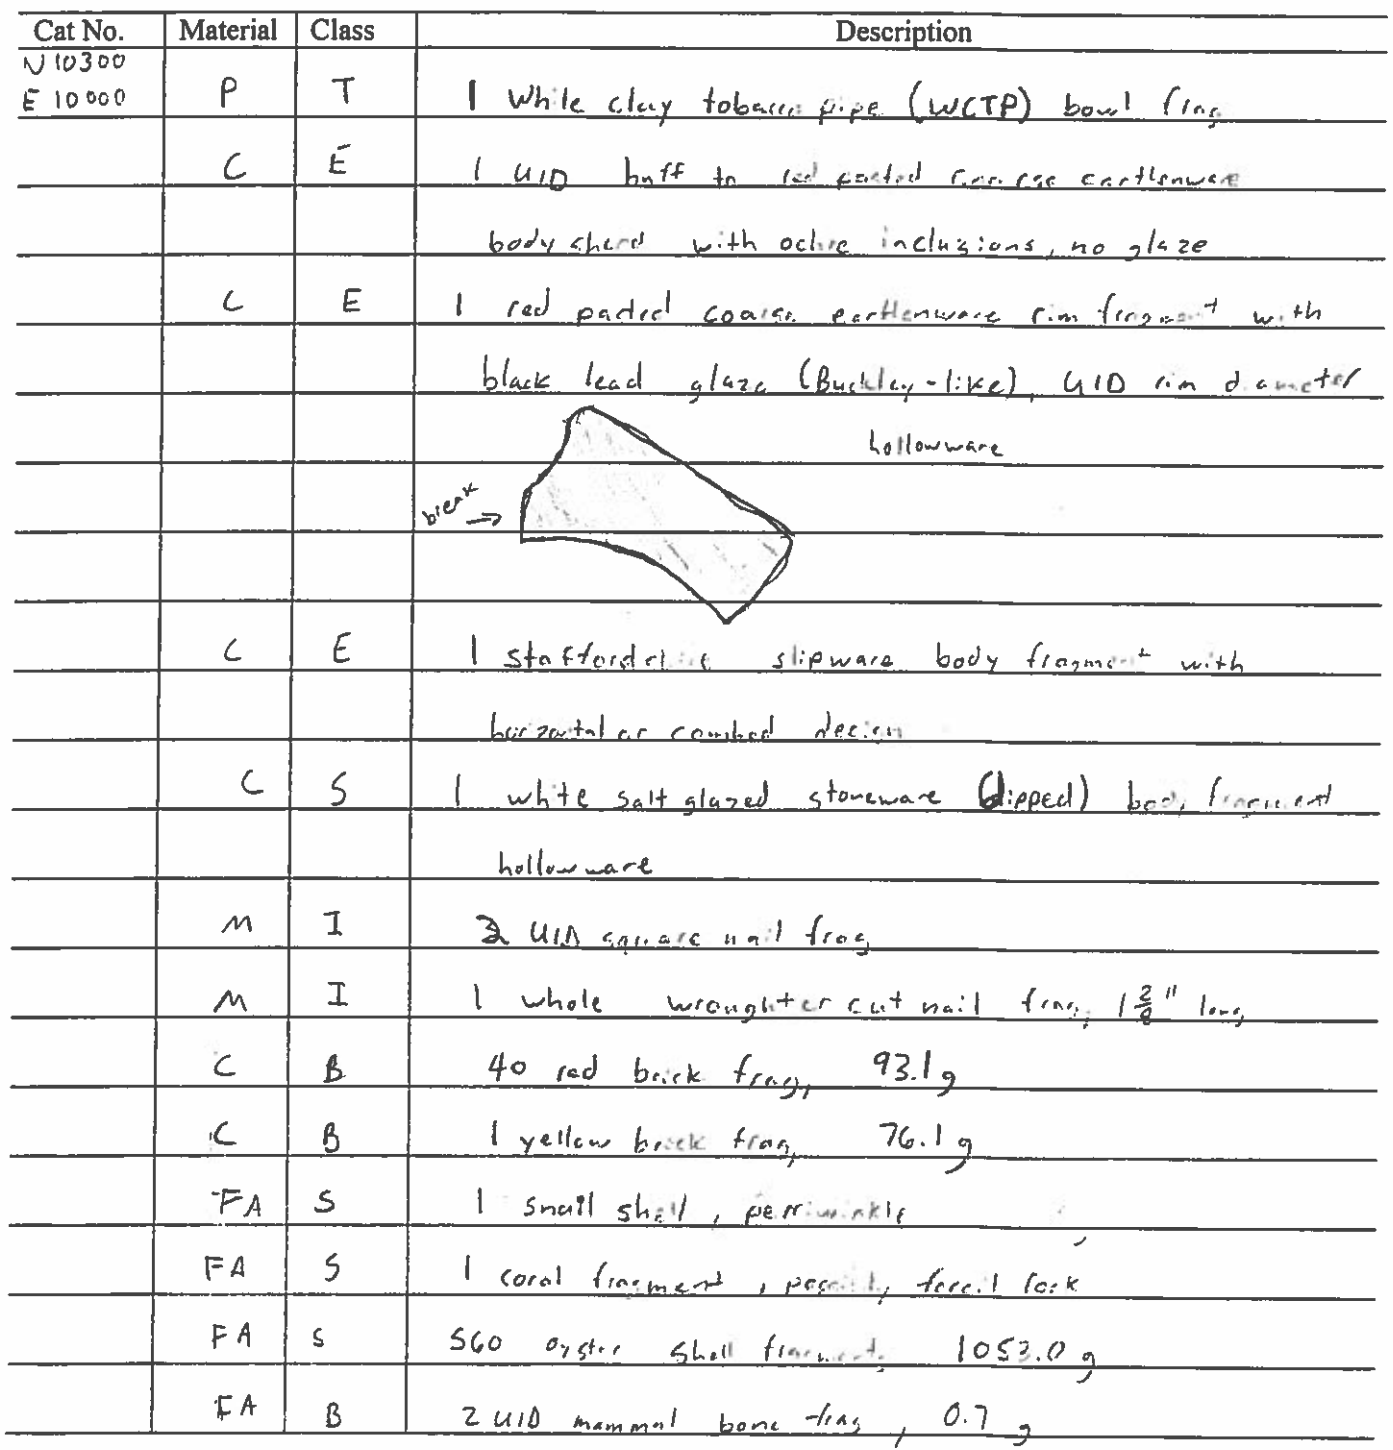 Cat No. Material Class Description
N 10300
E 10000 P T 1 white clay tobacco pipe (WCTP) bowl frag
C E 1 UID buff to red pasted coarse earthenware
body sherd with ochre inclusions, no glaze
C E 1 red pasted coarse earthenware rim fragment with
black lead glaze (Buckley-like), UID rim diameter
hollowware
break →
C E 1 Staffordshire slipware body fragment with
horizontal or combed design
C S 1 white salt glazed stoneware (dipped) body fragment
hollowware
M I 2 UID square nail frag
M I 1 whole wrought or cut nail frag, 1 2/8" long
C B 40 red brick frag, 93.1 g
C B 1 yellow brick frag, 76.1 g
FA S 1 snail shell, perriwinkle
FA S 1 coral fragment, possibly fossil rock
FA S 560 oyster shell fragments, 1053.0 g
FA B 2 UID mammal bone frag, 0.7 g